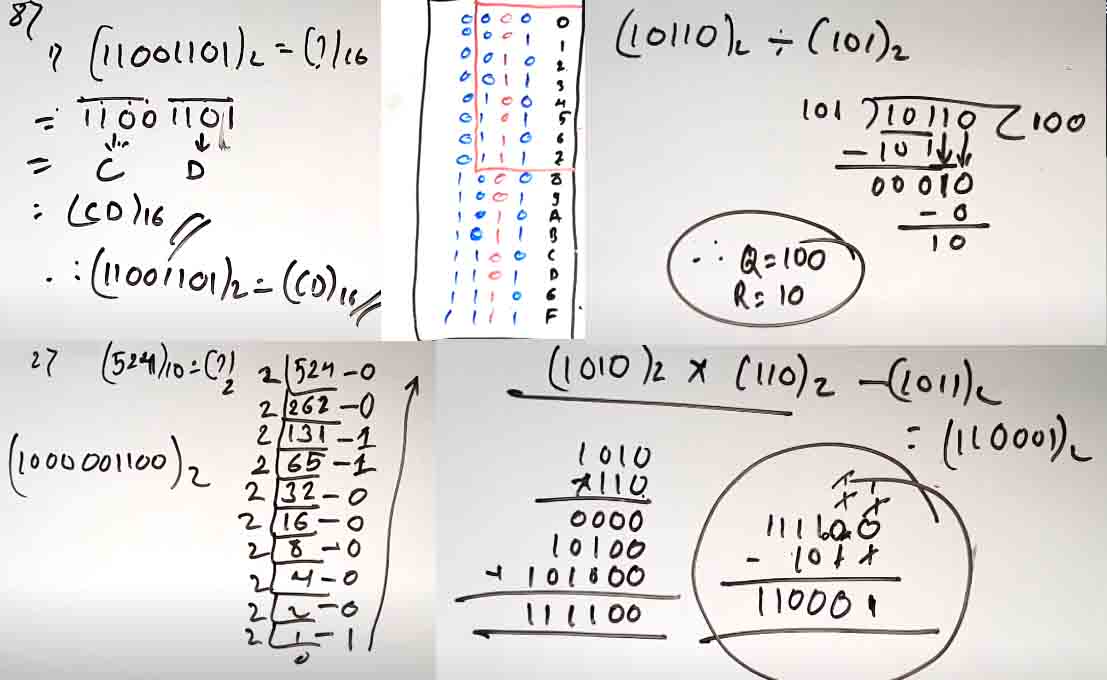 87
i7 (11001101)₂ = (?)₁₆
= 1100 1101
= C D
= (CD)₁₆
∴ (11001101)₂ = (CD)₁₆
0 0 0 0 0
0 0 0 1 1
0 0 1 0 2
0 0 1 1 3
0 1 0 0 4
0 1 0 1 5
0 1 1 0 6
0 1 1 1 7
1 0 0 0 8
1 0 0 1 9
1 0 1 0 A
1 0 1 1 B
1 1 0 0 C
1 1 0 1 D
1 1 1 0 6
1 1 1 1 F
(10110)₂ ÷ (101)₂
101 ) 10110 ( 100
- 101
00010
- 0
10
∴ Q = 100
R = 10
27 (524)₁₀ = (?)₂
(1000001100)₂
2 524 - 0
2 262 - 0
2 131 - 1
2 65 - 1
2 32 - 0
2 16 - 0
2 8 - 0
2 4 - 0
2 2 - 0
2 1 - 1
0
(1010)₂ × (110)₂ - (1011)₂
= (110001)₂
1010
×110
0000
10100
+ 101000
111100
111100
- 1011
110001